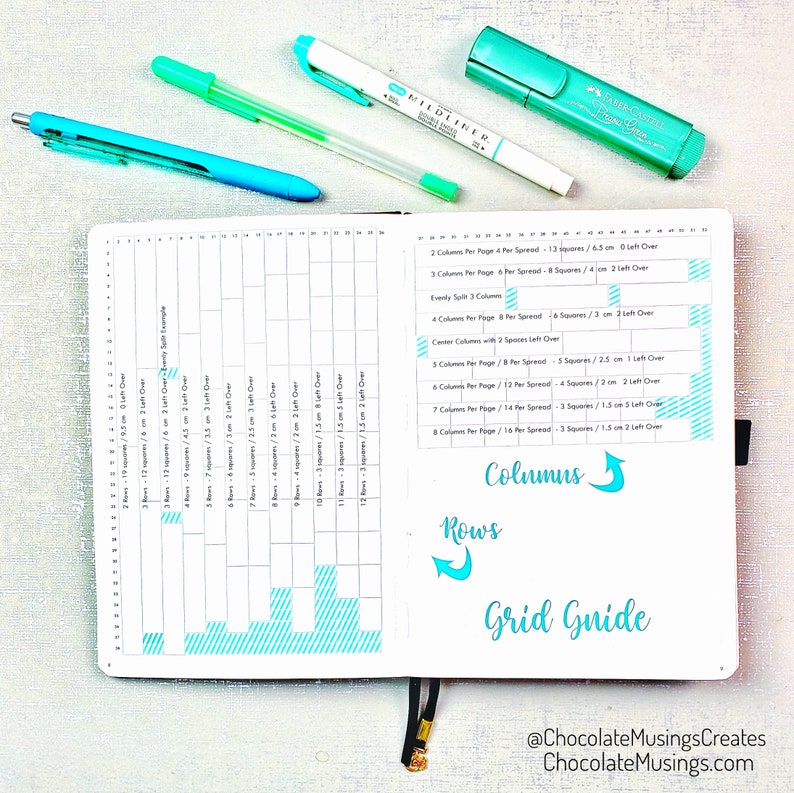 MILDLINER
DOUBLE ENDED
DOUBLE POINTE
FABER-CASTELL
1 2 3 4 5 6 7 8 9 10 11 12 13 14 15 16 17 18 19 20 21 22 23 24 25 26
27 28 29 30 31 32 33 34 35 36 37 38 39 40 41 42 43 44 45 46 47 48 49 50 51 52
1
2
3
4
5
6
7
8
9
10
11
12
13
14
15
16
17
18
19
20
21
22
23
24
25
26
27
28
29
30
31
32
33
34
35
36
37
38
2 Rows - 19 squares / 9.5 cm 0 Left Over
3 Rows - 12 squares / 6 cm 2 Left Over
3 Rows - 12 squares / 6 cm 2 Left Over - Evenly Split Example
4 Rows - 9 squares / 4.5 cm 2 Left Over
5 Rows - 7 squares / 3.5 cm 3 Left Over
6 Rows - 6 squares / 3 cm 2 Left Over
7 Rows - 5 squares / 2.5 cm 3 Left Over
8 Rows - 4 squares / 2 cm 6 Left Over
9 Rows - 4 squares / 2 cm 2 Left Over
10 Rows - 3 squares / 1.5 cm 8 Left Over
11 Rows - 3 squares / 1.5 cm 5 Left Over
12 Rows - 3 squares / 1.5 cm 2 Left Over
8
2 Columns Per Page 4 Per Spread - 13 squares / 6.5 cm 0 Left Over
3 Columns Per Page 6 Per Spread - 8 Squares / 4 cm 2 Left Over
Evenly Split 3 Columns
4 Columns Per Page 8 Per Spread - 6 Squares / 3 cm 2 Left Over
Center Columns with 2 Spaces Left Over
5 Columns Per Page / 8 Per Spread - 5 Squares / 2.5 cm 1 Left Over
6 Columns Per Page / 12 Per Spread - 4 Squares / 2 cm 2 Left Over
7 Columns Per Page / 14 Per Spread - 3 Squares / 1.5 cm 5 Left Over
8 Columns Per Page / 16 Per Spread - 3 Squares / 1.5 cm 2 Left Over
Columns
Rows
Grid Guide
9
@ChocolateMusingsCreates
ChocolateMusings.com